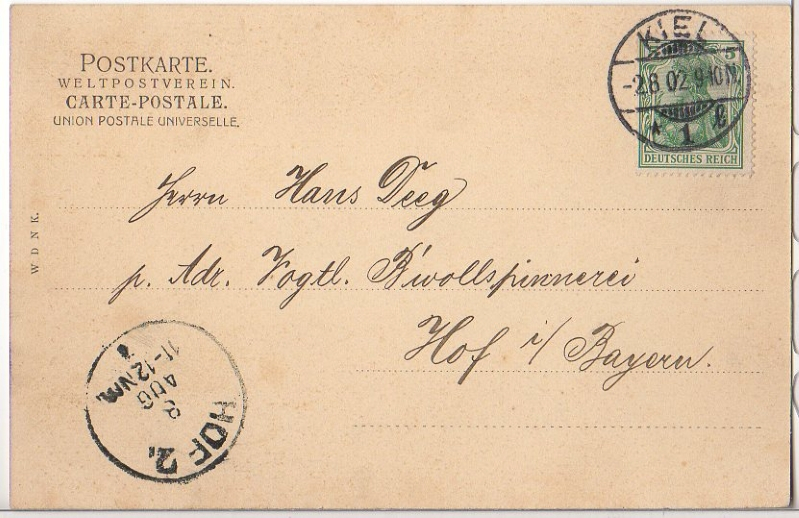 POSTKARTE.
WELTPOSTVEREIN.
CARTE-POSTALE.
UNION POSTALE UNIVERSELLE.
KIEL
-2.8.02.9-10N
* 1 e
5
DEUTSCHES REICH
Herrn Hans Deeg
p. Adr. Vogtl. B'wollspinnerei
Hof i/ Bayern.
W D N K.
HOF 2.
AUG
11-12Vm.